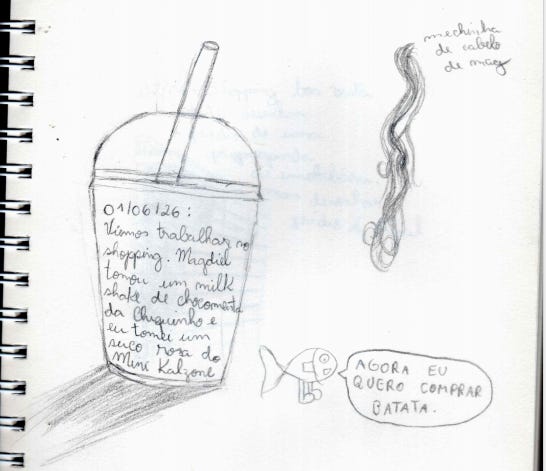 mechinha
de cabelo
de mag
01/06/26:
Viemos trabalhar no
shopping. Magdiel
tomou um milk
shake de chocomenta
da Chiquinho e
eu tomei um
suco rosa do
Mini Kalzone
AGORA EU
QUERO COMPRAR
BATATA.